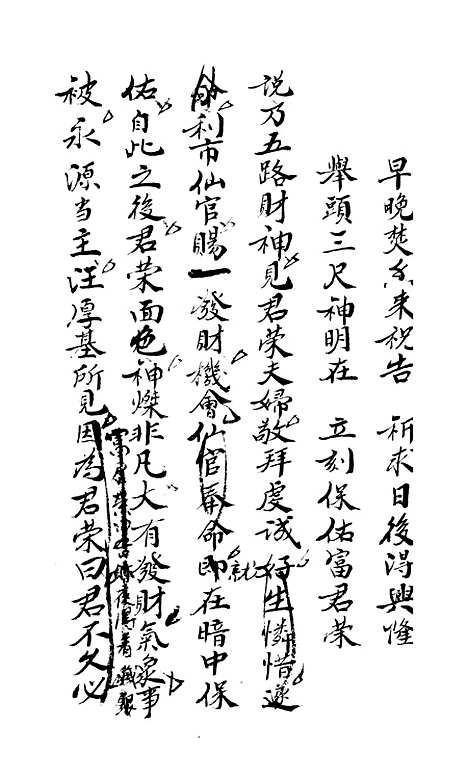 早晚焚香來祝告　祈求日後得興隆
舉頭三尺神明在　立刻保佑富君荣
説乃五路財神見君荣夫婦敬拜虔诚好生憐惜遂
命利市仙官賜一發財機會仙官奉命即就在暗中保
佑自此之後君荣面色神㷟非凡大有發財氣象事
被永源当主汪厚基所見因為君荣曰君不久必